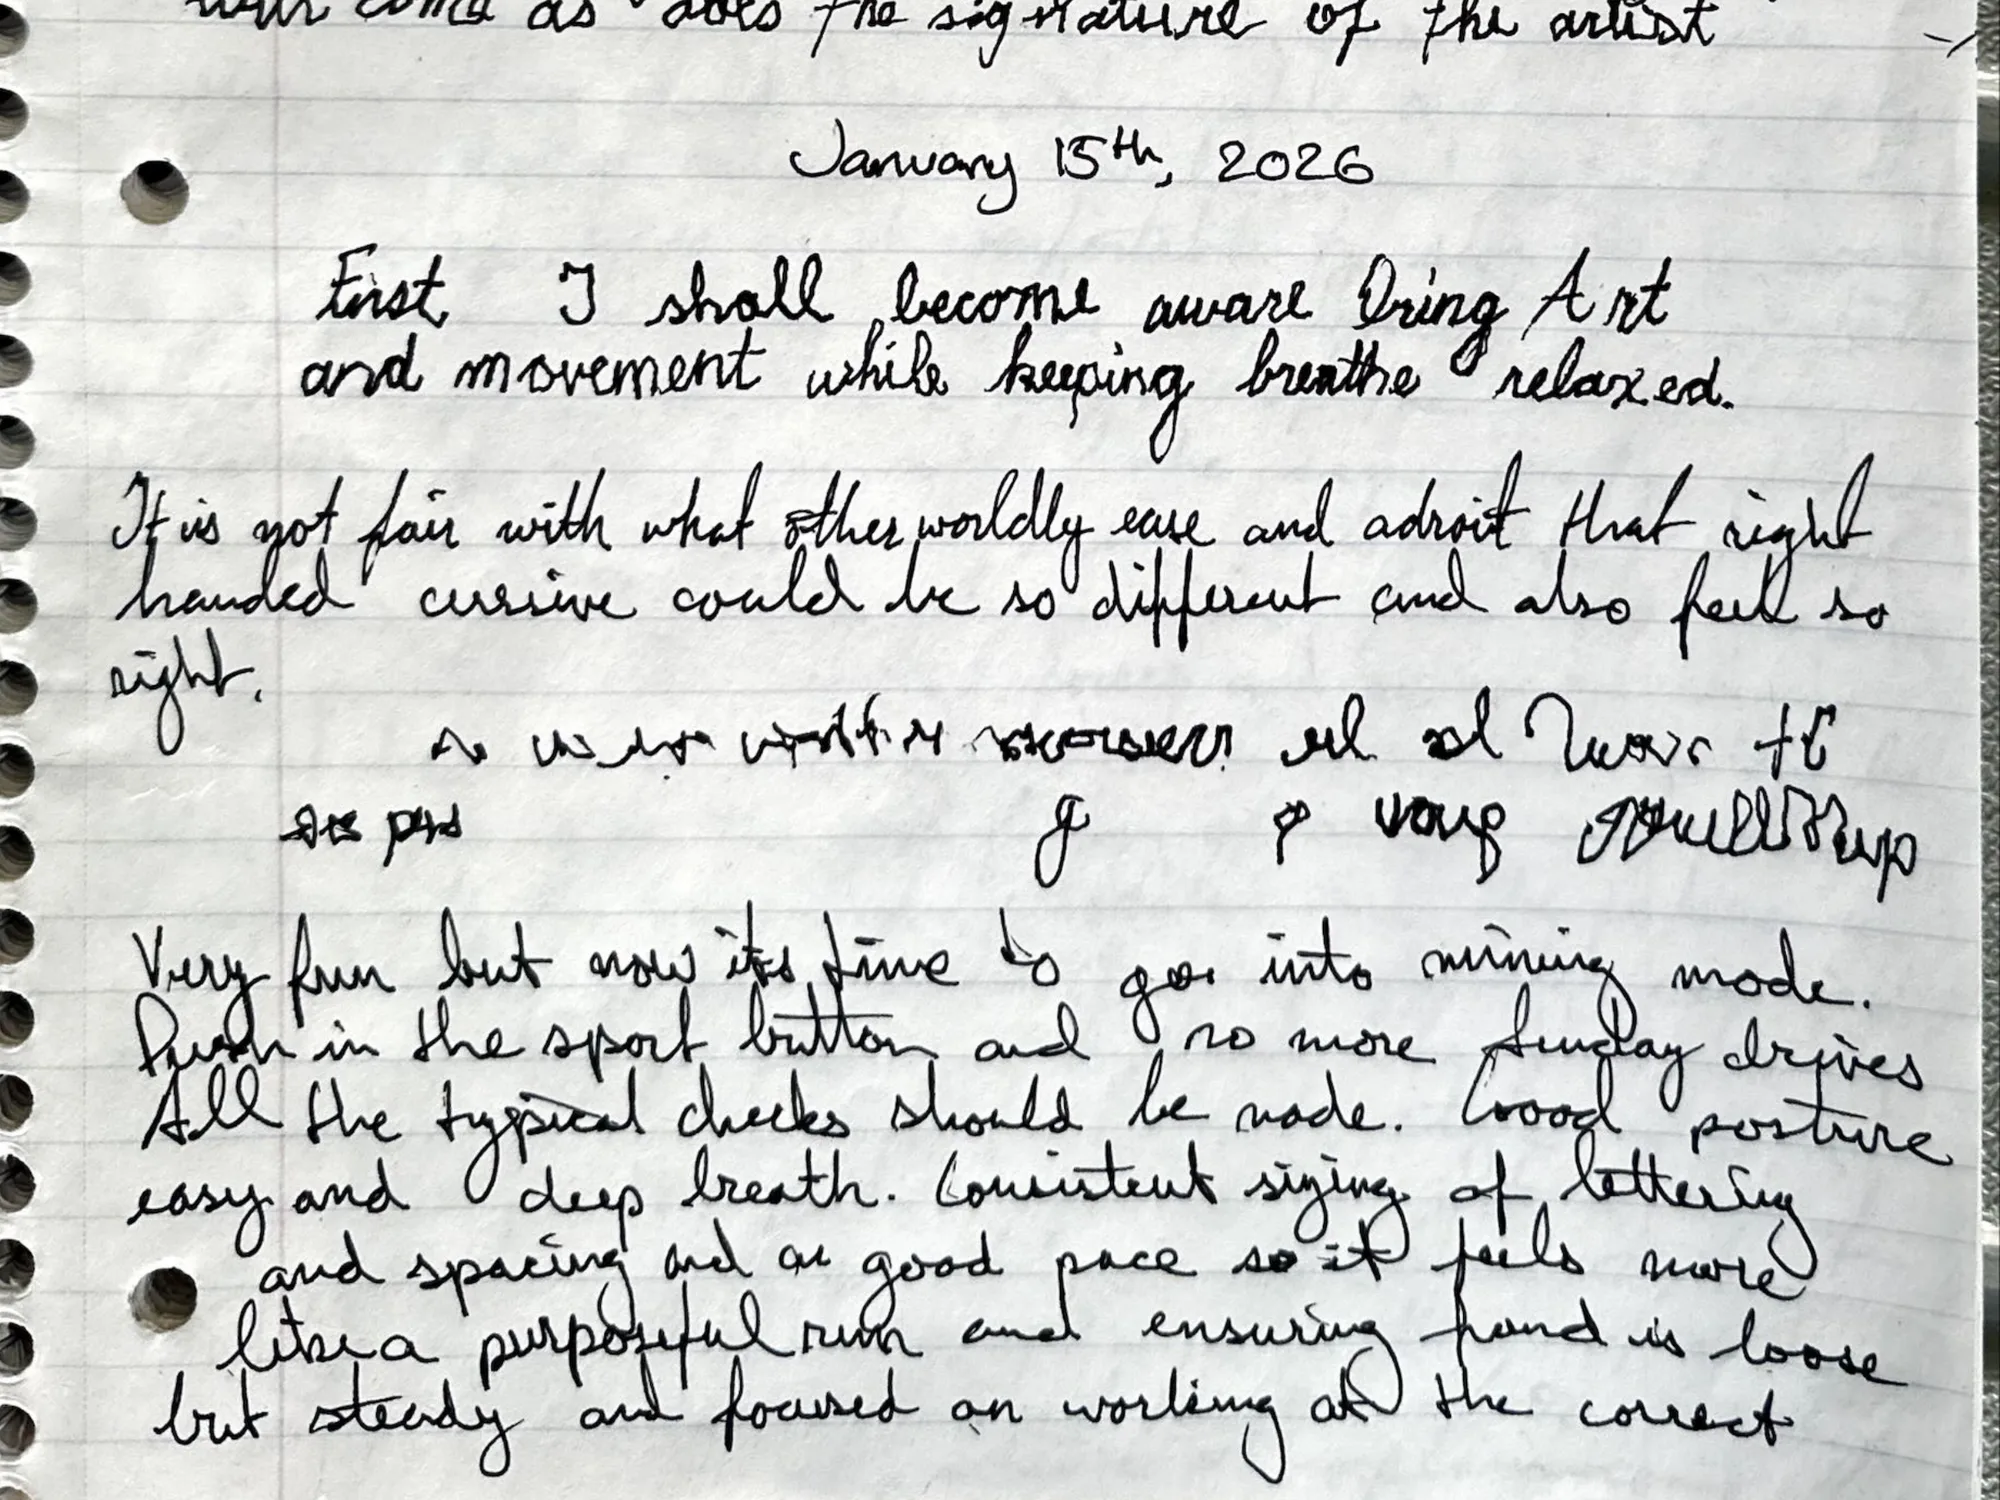 will come as does the signature of the artist
January 15th, 2026
First, I shall become aware Dring Art
and movement while keeping breathe relaxed.
It is not fair with what otherworldly ease and adroit that right
handed cursive could be so different and also feel so
right.
Very fun but now its time to go into mining mode.
Push in the sport button and no more sunday drives
All the typical checks should be made. Good posture
easy and deep breath. Consistent sizing of lettering
and spacing and a good pace so it feels more
like a purposeful run and ensuring hand is loose
but steady and focused on working at the correct